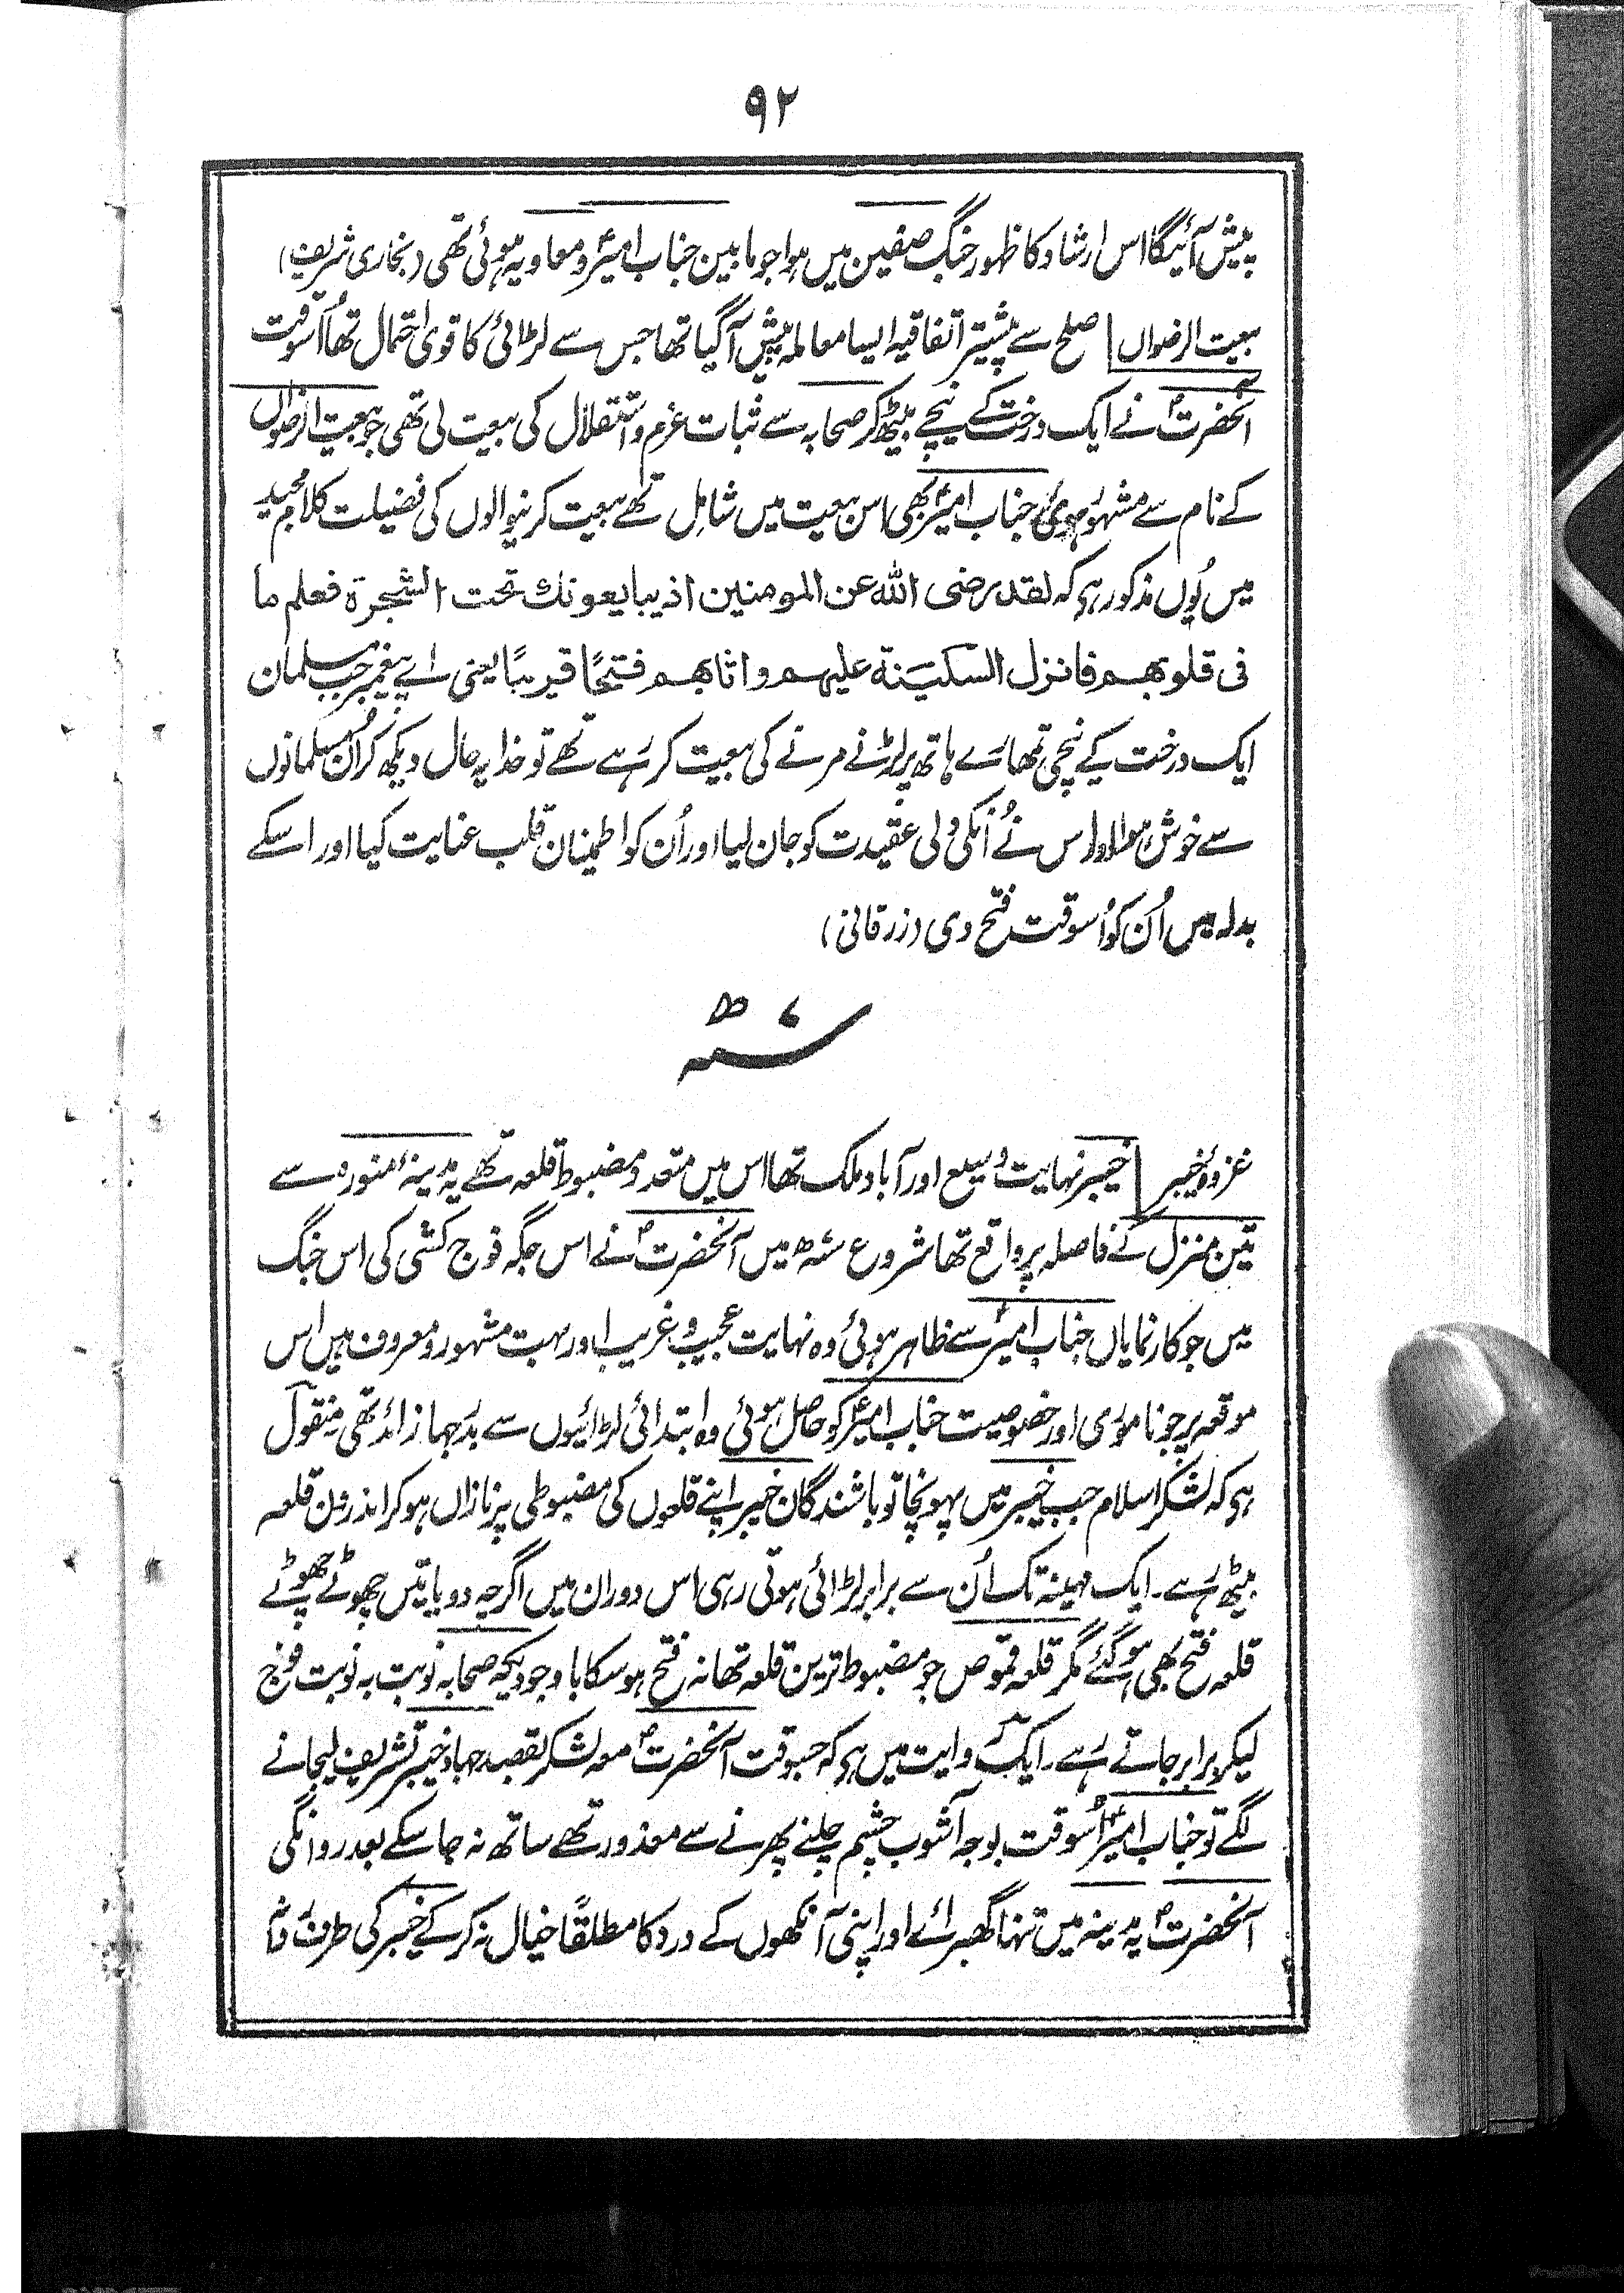 ۹۲
پیش آئیگا اس ارشاد کا ظہور جنگ صفین میں ہوا جو مابین جناب امیرؑ و معاویہ ہوئی تھی (بخاری شریف)
بیعت الرضواں صلح سے پیشتر اتفاقیہ ایسا معاملہ پیش آگیا تھا جس سے لڑائی کا قوی احتمال تھا اُسوقت
آنحضرتؐ نے ایک درخت کے نیچے بیٹھ کر صحابہ سے ثبات عزم و استقلال کی بیعت لی تھی جو بیعت الرضواں
کے نام سے مشہور ہوئی جناب امیرؑ بھی اس بیعت میں شامل تھے بیعت کرنیوالوں کی فضیلت کلام مجید
میں یُوں مذکور ہے کہ لقد رضی اللہ عن المومنین اذ یبایعونك تحت الشجرة فعلم ما
فی قلوبهم فانزل السکینة علیهم و اثابهم فتحًا قریبًا یعنی اے پیغمبر جب مسلمان
ایک درخت کے نیچی تمھارے ہاتھ پر لڑنے مرنے کی بیعت کر رہے تھے تو خدا یہ حال دیکھ کر اُن مسلمانوں
سے خوش ہوا اور اس نے اُنکی دلی عقیدت کو جان لیا اور اُن کو اطمینان قلب عنایت کیا اور اسکے
بدلہ میں اُن کو اُسوقت فتح دی (زرقانی)
سنہ ۷ ھ
غزوۂ خیبر خیبر نہایت وسیع اور آباد ملک تھا اس میں متعدد مضبوط قلعہ تھے یہ مدینۂ منورہ سے
تین منزل کے فاصلہ پر واقع تھا شروع سنہ ۷ھ میں آنحضرتؐ نے اس جگہ فوج کشی کی اس جنگ
میں جو کار نمایاں جناب امیرؑ سے ظاہر ہوئی وہ نہایت عجیب و غریب اور بہت مشہور و معروف ہیں اس
موقعہ پر جو ناموری اور خصوصیت جناب امیرؑ کو حاصل ہوئی وہ ابتدائی لڑائیوں سے بدرجہا زائد تھی منقول
ہے کہ لشکر اسلام جب خیبر میں پہونچا تو باشندگان خیبر اپنے قلعوں کی مضبوطی پر نازاں ہو کر اندرون قلعہ
بیٹھ رہے۔ ایک مہینہ تک اُن سے برابر لڑائی ہوتی رہی اس دوران میں اگرچہ دو یا تین چھوٹے چھوٹے
قلعہ فتح بھی ہو گئے مگر قلعہ قموص جو مضبوط ترین قلعہ تھا نہ فتح ہو سکا باوجودیکہ صحابہ نوبت بہ نوبت فوج
لیکر برابر جاتے رہے۔ ایک روایت میں ہے کہ جسوقت آنحضرتؐ معہ لشکر بقصد جہاد خیبر تشریف لیجانے
لگے تو جناب امیرؑ اُسوقت بوجہ آشوب چشم چلنے پھرنے سے معذور تھے ساتھ نہ جا سکے بعد روانگی
آنحضرتؐ یہ مدینہ میں تنہا گھبرائے اور اپنی آنکھوں کے درد کا مطلقًا خیال نہ کر کے خیبر کی طرف